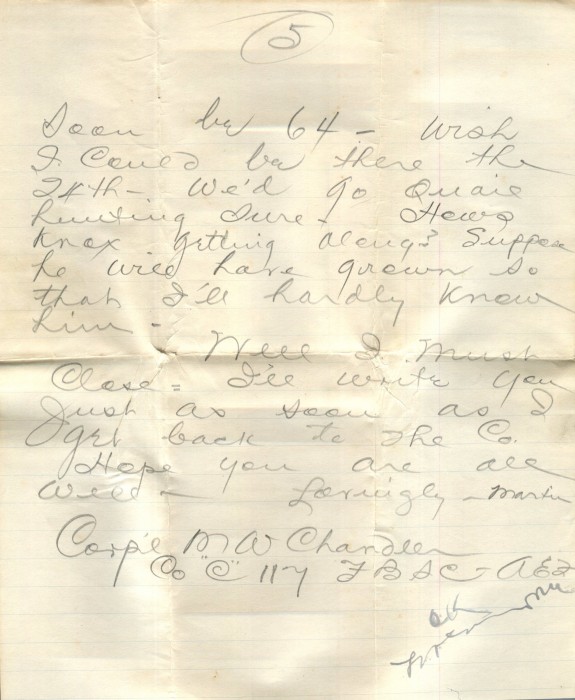 5
Soon be 64 - Wish
I Could be there the
24th - We'd go Quail
hunting Sure - Hows
Knox getting along? Suppose
he will have grown so
that I'll hardly Know
him -
Well I Must
Close = I'll write you
Just as soon as I
get back to the Co.
Hope you are all
Well - Lovingly - Martin
Corp'l M W Chandler
Co "C" 117 F B S C - AEF
OK